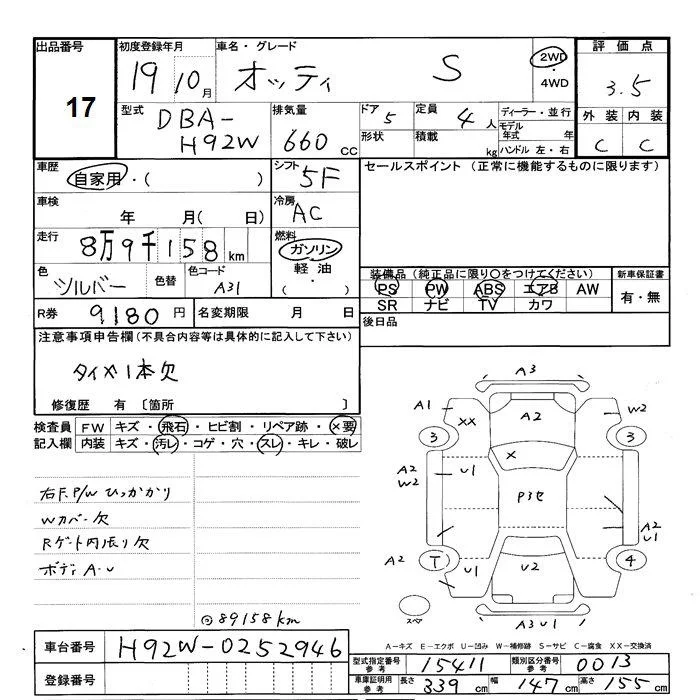 出品番号
17
初度登録年月
19 10月
車名・グレード
オッティ S
2WD
・
4WD
評価点
3.5
型式
DBA-
H92W
排気量
660 cc
ドア 5
形状
定員 4人
積載 kg
ディーラー・並行
モデル年式 年
ハンドル 左・右
外装 内装
C C
車歴
自家用・( )
シフト
5F
セールスポイント (正常に機能するものに限ります)
車検
年 月( 日)
冷房
AC
走行
8万9千158km
燃料
ガソリン
軽油
・
色
ツルバー
色替
色コード
A31
装備品 (純正品に限り〇をつけてください)
新車保証書
PS PW ABS エアB AW
SR ナビ TV カワ
有・無
R券 9180円
名変期限 月 日
後日品
注意事項申告欄(不具合内容等は具体的に記入して下さい)
タイヤ1本欠
修復歴 有 〔箇所 〕
検査員
記入欄
FW キズ・飛石・ヒビ割・リペア跡・×要
内装 キズ・汚レ・コゲ・穴・スレ・キレ・破レ
右F.P/Wひっかかり
Wカバー欠
Rゲート内張り欠
ボディA-U
◎89158km
A3
A1
XX
A2
W2
3
3
×
A2
W2
U1
P3セ
A2
U1
A2
T
U1
U2
4
スペア
A3 U1
A−キズ E−エクボ U−凹み W−補修跡 S−サビ C−腐食 XX−交換済
車台番号
H92W-0252946
登録番号
型式指定番号
参考
15411
類別区分番号
参考
0013
車庫証明用
参考
長さ 339cm
幅 147cm
高さ 155cm